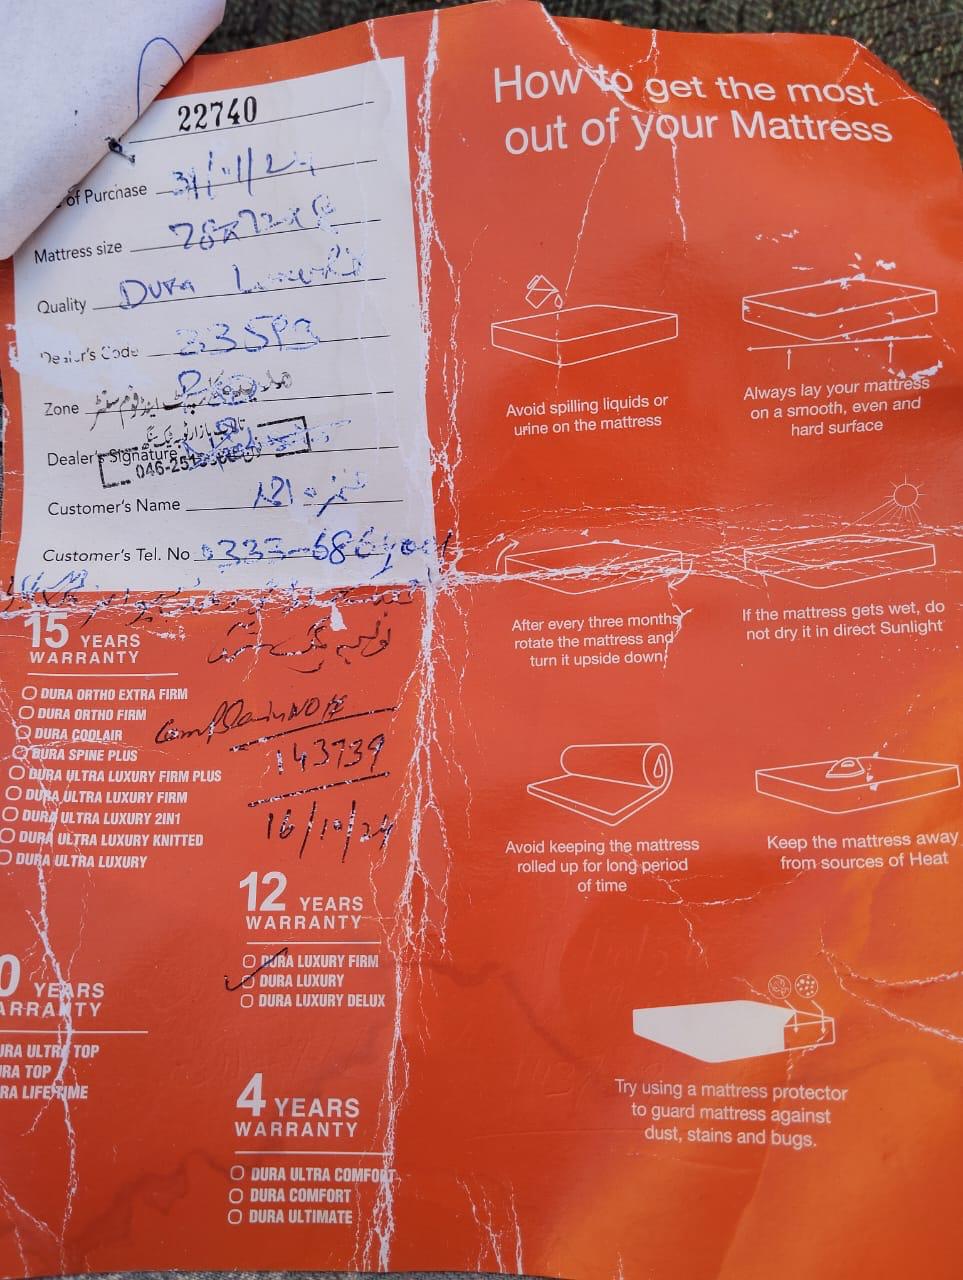 22740
of Purchase 31/ /24
Mattress size 78x72x8
Quality Dura
Dealer's Code
Zone
Dealer's Signature
046-251
Customer's Name
Customer's Tel. No 0333-686
15 YEARS
WARRANTY
DURA ORTHO EXTRA FIRM
DURA ORTHO FIRM
DURA COOLAIR
DURA SPINE PLUS
DURA ULTRA LUXURY FIRM PLUS
DURA ULTRA LUXURY FIRM
DURA ULTRA LUXURY 2IN1
DURA ULTRA LUXURY KNITTED
DURA ULTRA LUXURY
143739
16/10/24
12 YEARS
WARRANTY
DURA LUXURY FIRM
DURA LUXURY
DURA LUXURY DELUX
0 YEARS
ARRANTY
URA ULTRA TOP
RA TOP
RA LIFETIME
4 YEARS
WARRANTY
DURA ULTRA COMFORT
DURA COMFORT
DURA ULTIMATE
How to get the most
out of your Mattress
Avoid spilling liquids or
urine on the mattress
Always lay your mattress
on a smooth, even and
hard surface
After every three months
rotate the mattress and
turn it upside down
If the mattress gets wet, do
not dry it in direct Sunlight
Avoid keeping the mattress
rolled up for long period
of time
Keep the mattress away
from sources of Heat
Try using a mattress protector
to guard mattress against
dust, stains and bugs.